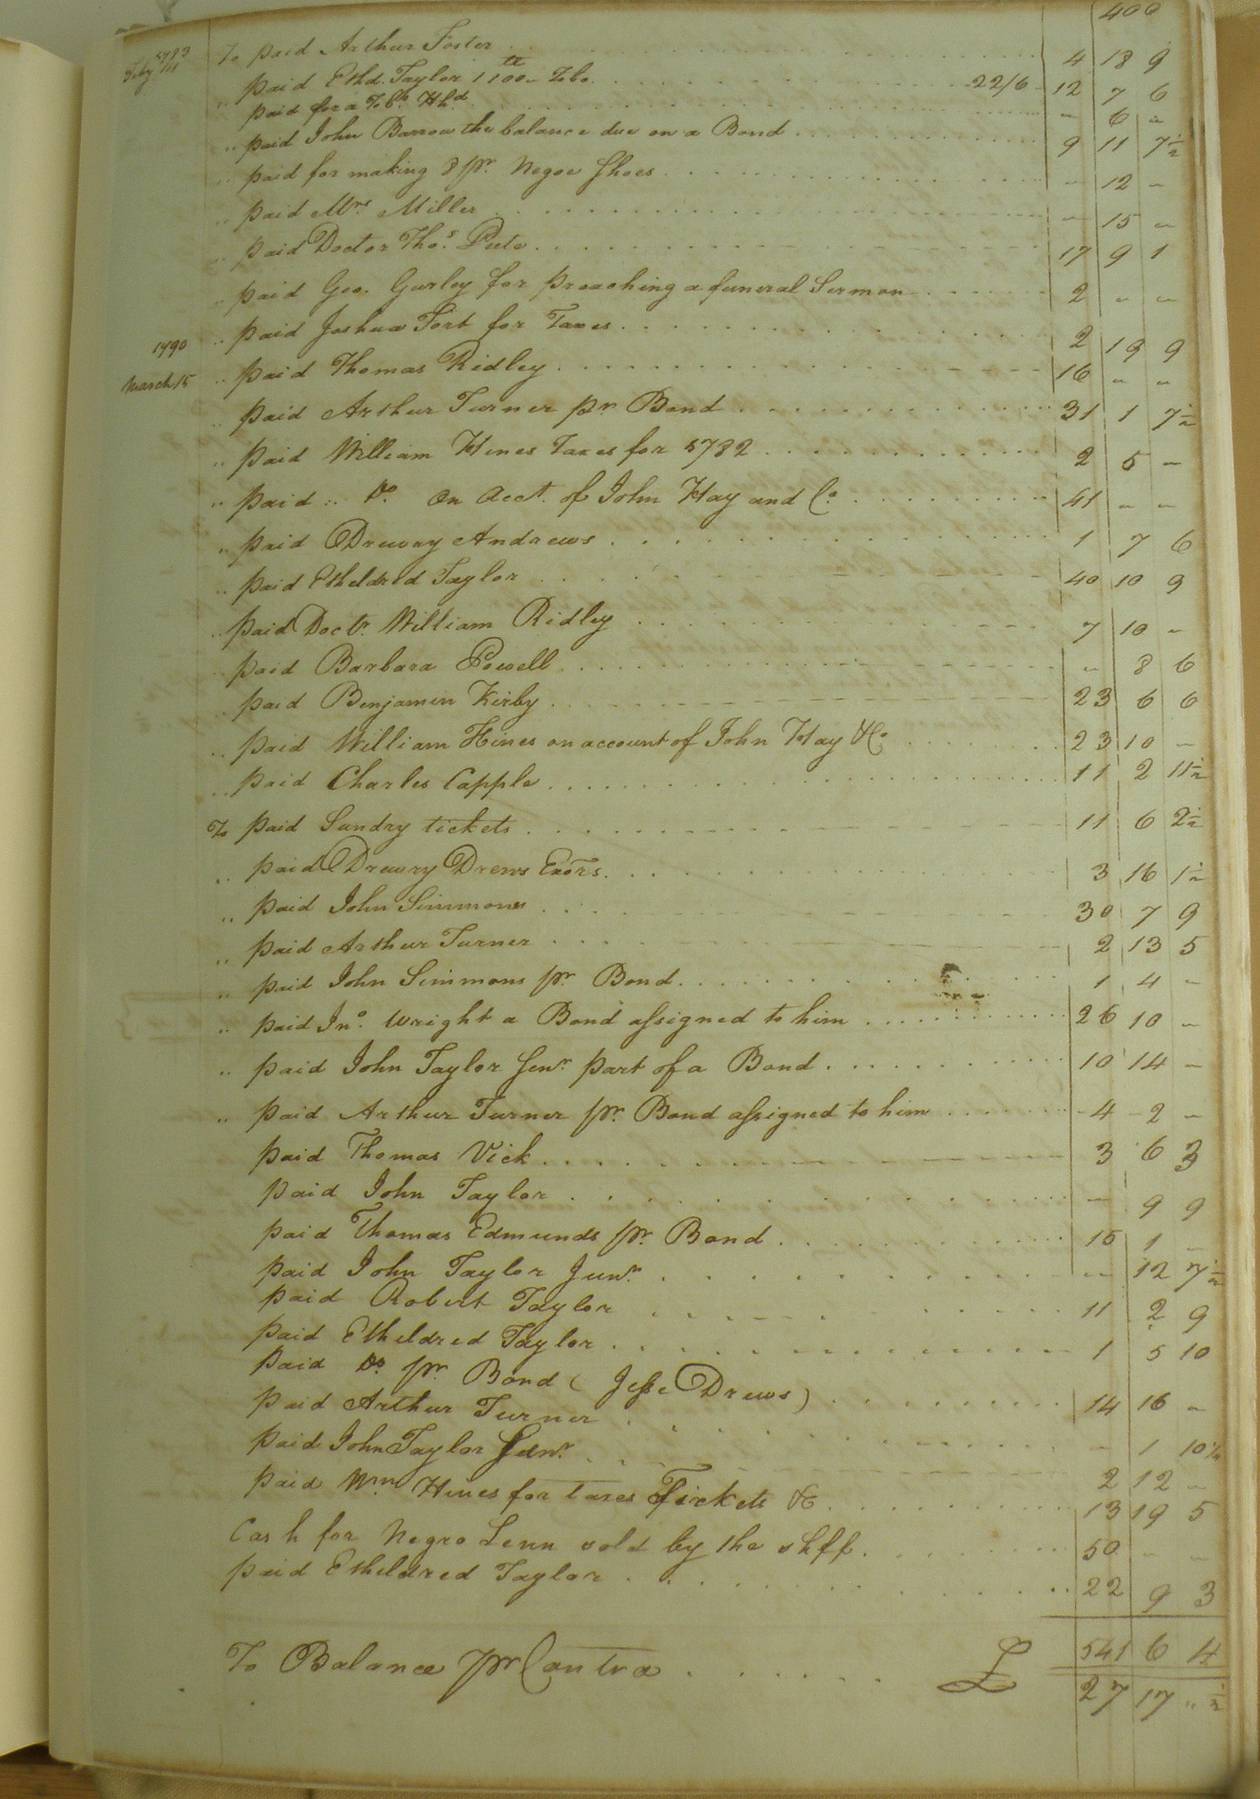 400
1783
Feby 14 To paid Arthur Foster 4 18 9
" paid Ethd. Taylor 1100 lb Tobo. 22/6 12 7 6
" paid for a Tobo. Hhd. - 6 -
" paid John Barrow the balance due on a Bond 9 11 7½
" paid for making 8 pr. Negoe Shoes - 12 -
" paid Mrs. Miller - 15 -
" paid Doctor Thos. Pete 17 9 1
" paid Geo. Gurley for preaching a funeral Sermon 2 - -
" paid Joshua Fort for Taxes 2 19 9
1790
March 15 " paid Thomas Ridley 16 - -
" paid Arthur Turner pr Bond 31 1 7½
" paid William Hines Taxes for 1782 2 5 -
" paid " Do. on Acct. of John Hay and Co. 41 - -
" paid Drewry Andrews 1 7 6
" paid Etheldred Taylor 40 10 9
" paid Doctr. William Ridley 7 10 -
" paid Barbara Powell - 8 6
" paid Benjamin Kirby 23 6 6
" paid William Hines on account of John Hay & Co. 23 10 -
" paid Charles Capple 11 2 11½
To paid Sundry tickets 11 6 2½
" paid Drewry Drews Exors. 3 16 1½
" paid John Simmons 30 7 9
" paid Arthur Turner 2 13 5
" paid John Simmons pr. Bond 1 4 -
" paid Jno. Wright a Bond assigned to him 26 10 -
" paid John Taylor Senr. part of a Bond 10 14 -
" paid Arthur Turner pr. Bond assigned to him 4 2 -
paid Thomas Vick 3 6 3
paid John Taylor - 9 9
paid Thomas Edmunds pr. Bond 15 1 -
paid John Taylor Junr. - 12 7½
paid Robert Taylor 11 2 9
paid Etheldred Taylor 1 5 10
paid Do. pr. Bond (Jesse Drews) 14 16 -
paid Arthur Turner - 1 10½
paid John Taylor Senr. 2 12 -
paid Wm. Hines for taxes Tickets &c 13 19 5
Cash for Negro Lenn sold by the shff. 50 - -
paid Etheldred Taylor 22 9 3
541 6 4
To Balance pr Contra £ 27 17 " ½